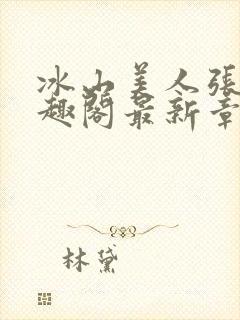 冰山美人張
趣閣最新章
林黛